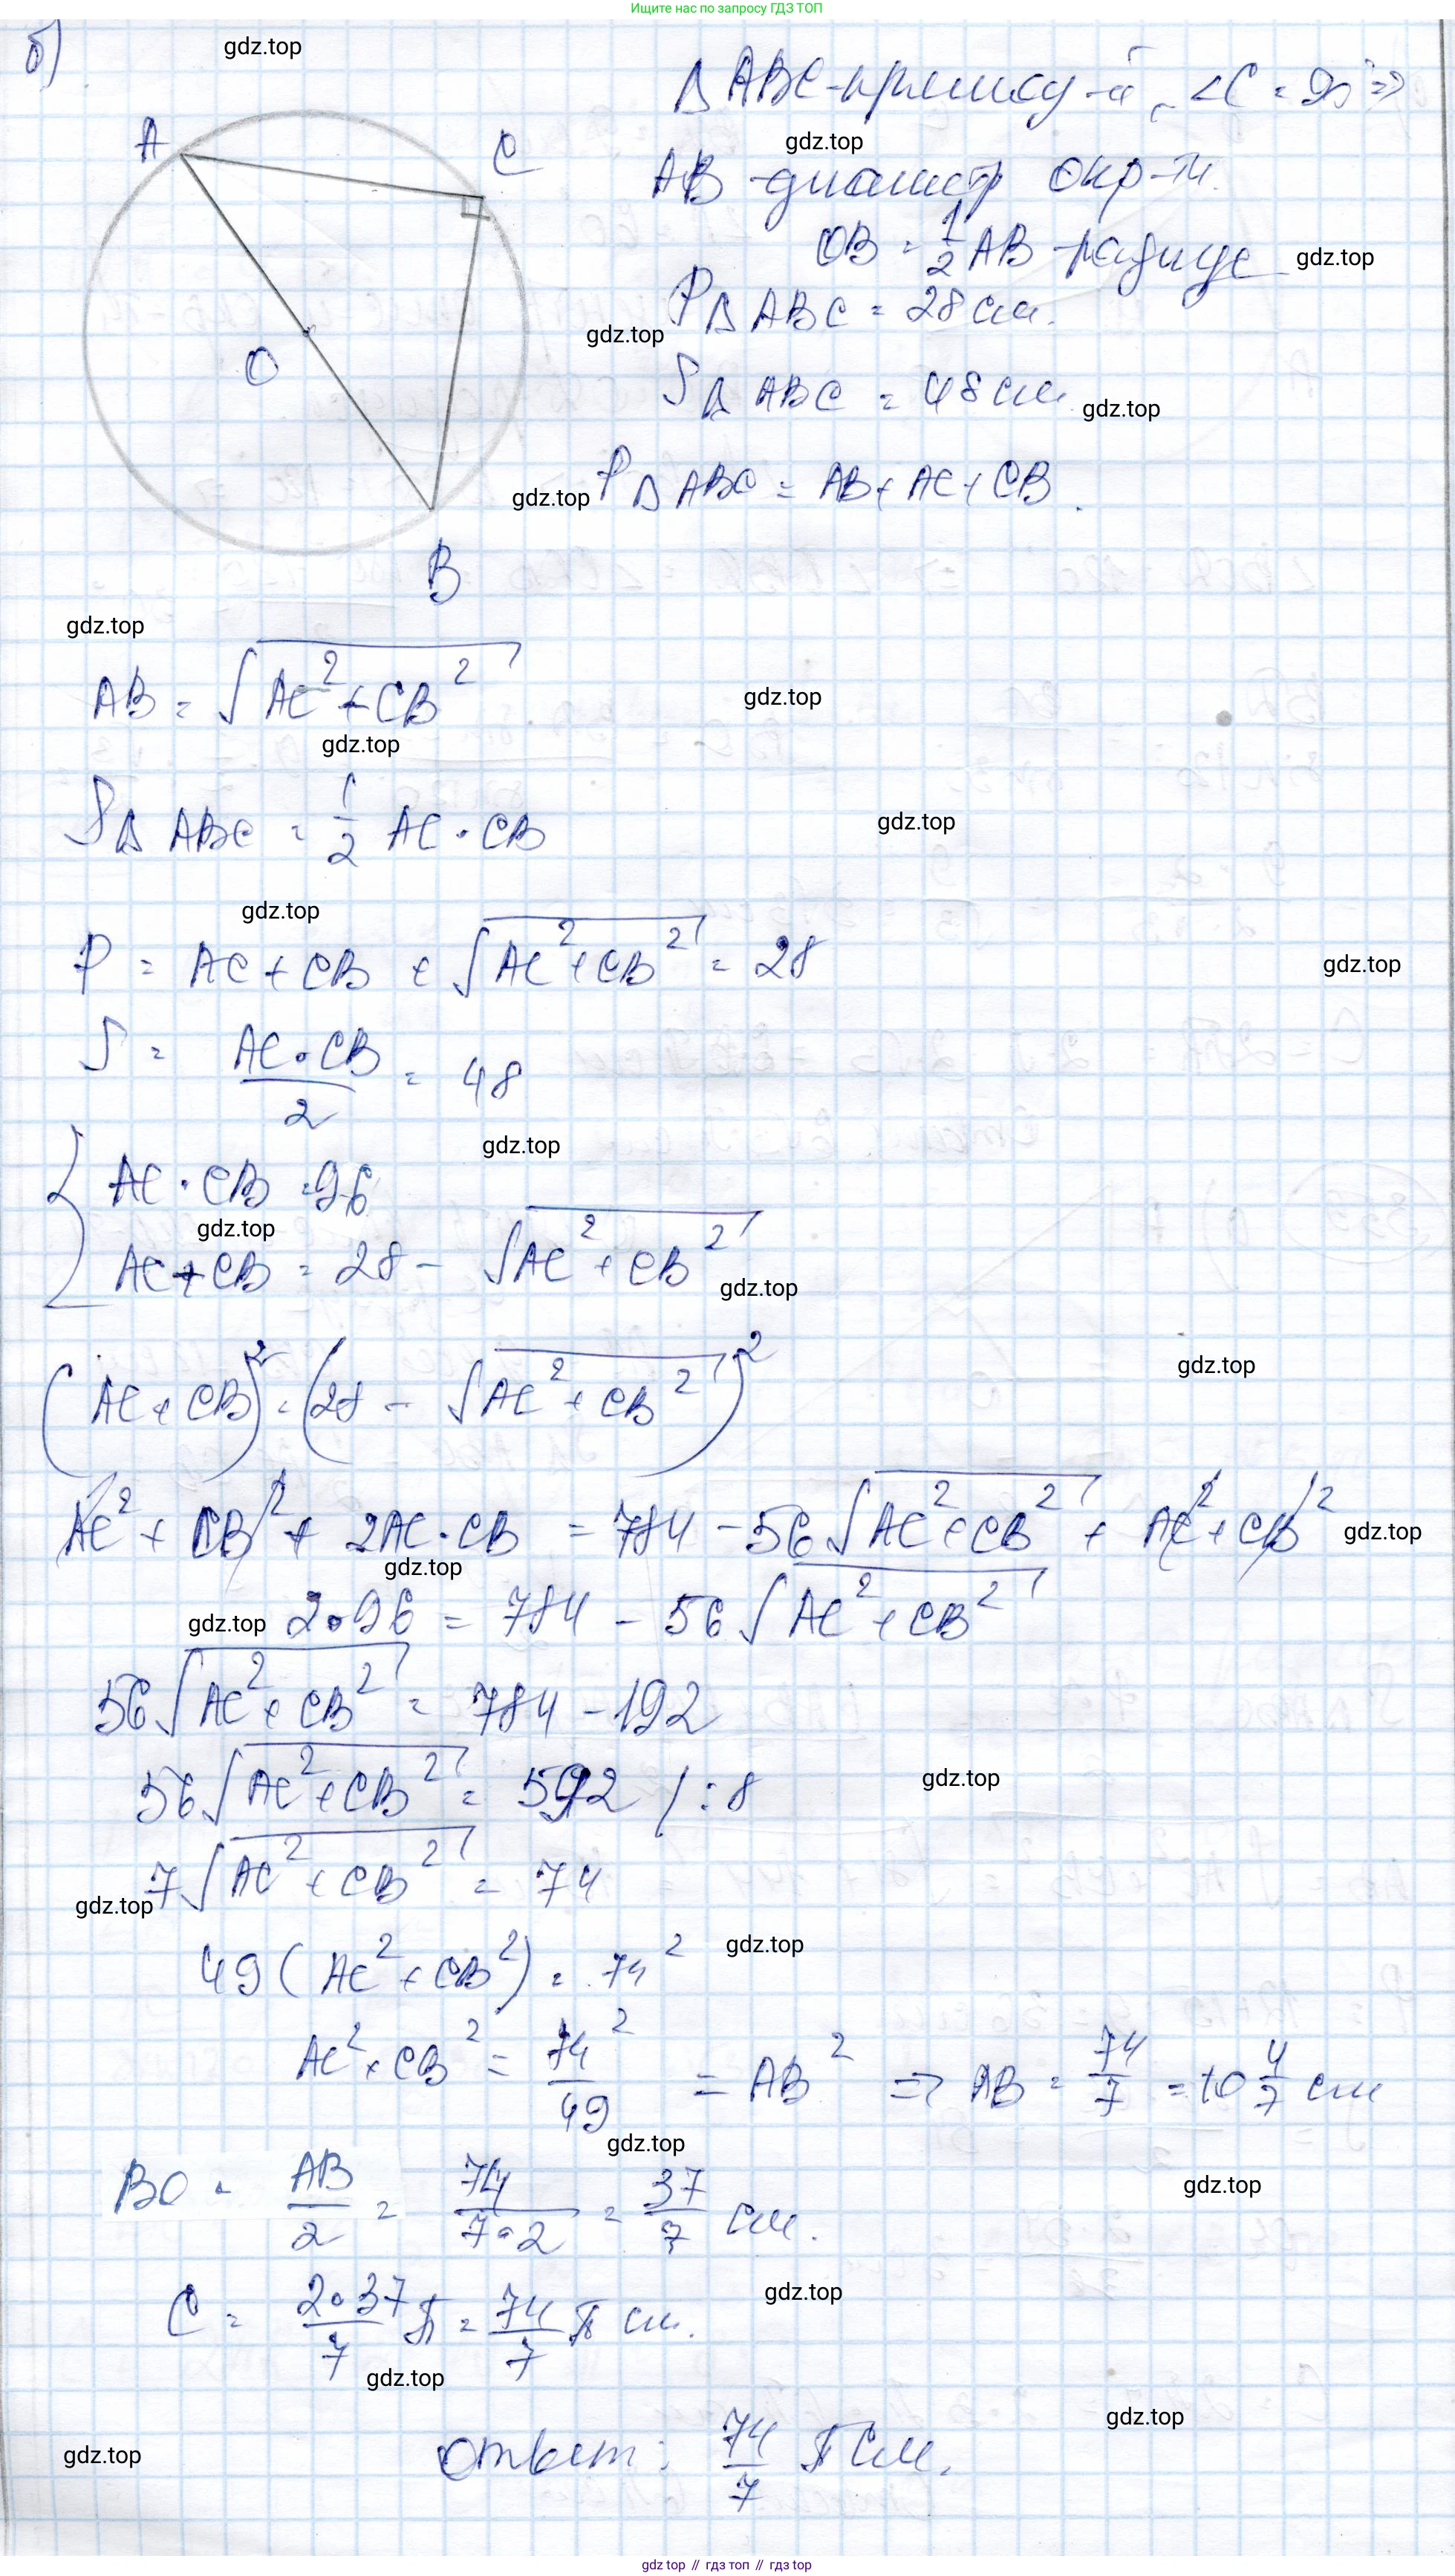 Ищите нас по запросу ГДЗ ТОП
б)
gdz.top
Δ ABC - прямоу-й, ∠C = 90° ⇒
gdz.top
A
C
AB - диаметр окр-ти.
OB = 1/2 AB - радиус
gdz.top
P Δ ABC = 28 см.
gdz.top
O
S Δ ABC = 48 см
gdz.top
P Δ ABC = AB + AC + CB.
gdz.top
B
gdz.top
AB = √(AC² + CB²)
gdz.top
gdz.top
S Δ ABC = 1/2 AC · CB
gdz.top
gdz.top
P = AC + CB + √(AC² + CB²) = 28
gdz.top
S = (AC · CB)/2 = 48
gdz.top
{ AC · CB = 96
gdz.top
AC + CB = 28 - √(AC² + CB²)
gdz.top
(AC + CB)² = (28 - √(AC² + CB²))²
gdz.top
AC² + CB² + 2AC · CB = 784 - 56√(AC² + CB²) + AC² + CB²
gdz.top
gdz.top
gdz.top
2 · 96 = 784 - 56√(AC² + CB²)
56√(AC² + CB²) = 784 - 192
56√(AC² + CB²) = 592 / : 8
gdz.top
7√(AC² + CB²) = 74
gdz.top
49(AC² + CB²) = 74²
gdz.top
AC² + CB² = 74²/49 = AB² ⇒ AB = 74/7 = 10 4/7 см
gdz.top
BO = AB/2 = 74/(7·2) = 37/7 см.
gdz.top
C = (2·37)/7 π = 74/7 π см.
gdz.top
gdz.top
Ответ: 74/7 π см.
gdz.top
gdz.top
gdz.top // гдз топ // гдз top